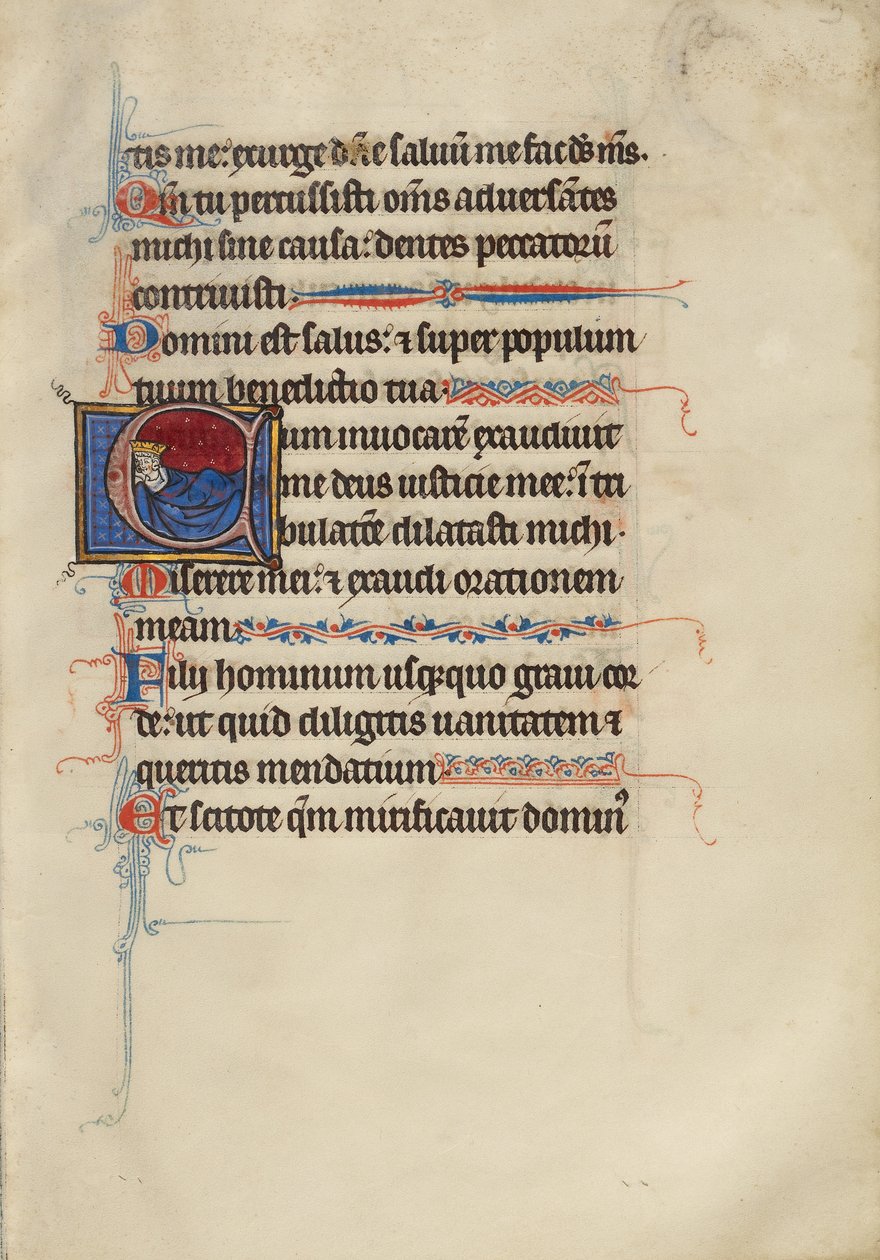 tis me: exurge dn̄e saluū me fac ds̄ ms̄.
Qm̄ tu percussisti om̄s aduersātes
michi sine causa: dentes peccatorū
contriuisti.
Domini est salus: ⁊ super populum
tuum benedictio tua.
Cum inuocarē exaudiuit
me deus iusticie mee: ī tri
bulatōe dilatasti michi.
Miserere mei: ⁊ exaudi orationem
meam.
Filij hominum usq̄quo graui cor
de: ut quid diligitis uanitatem ⁊
queritis mendatium.
Et scitote qm̄ mirificauit domin᷒